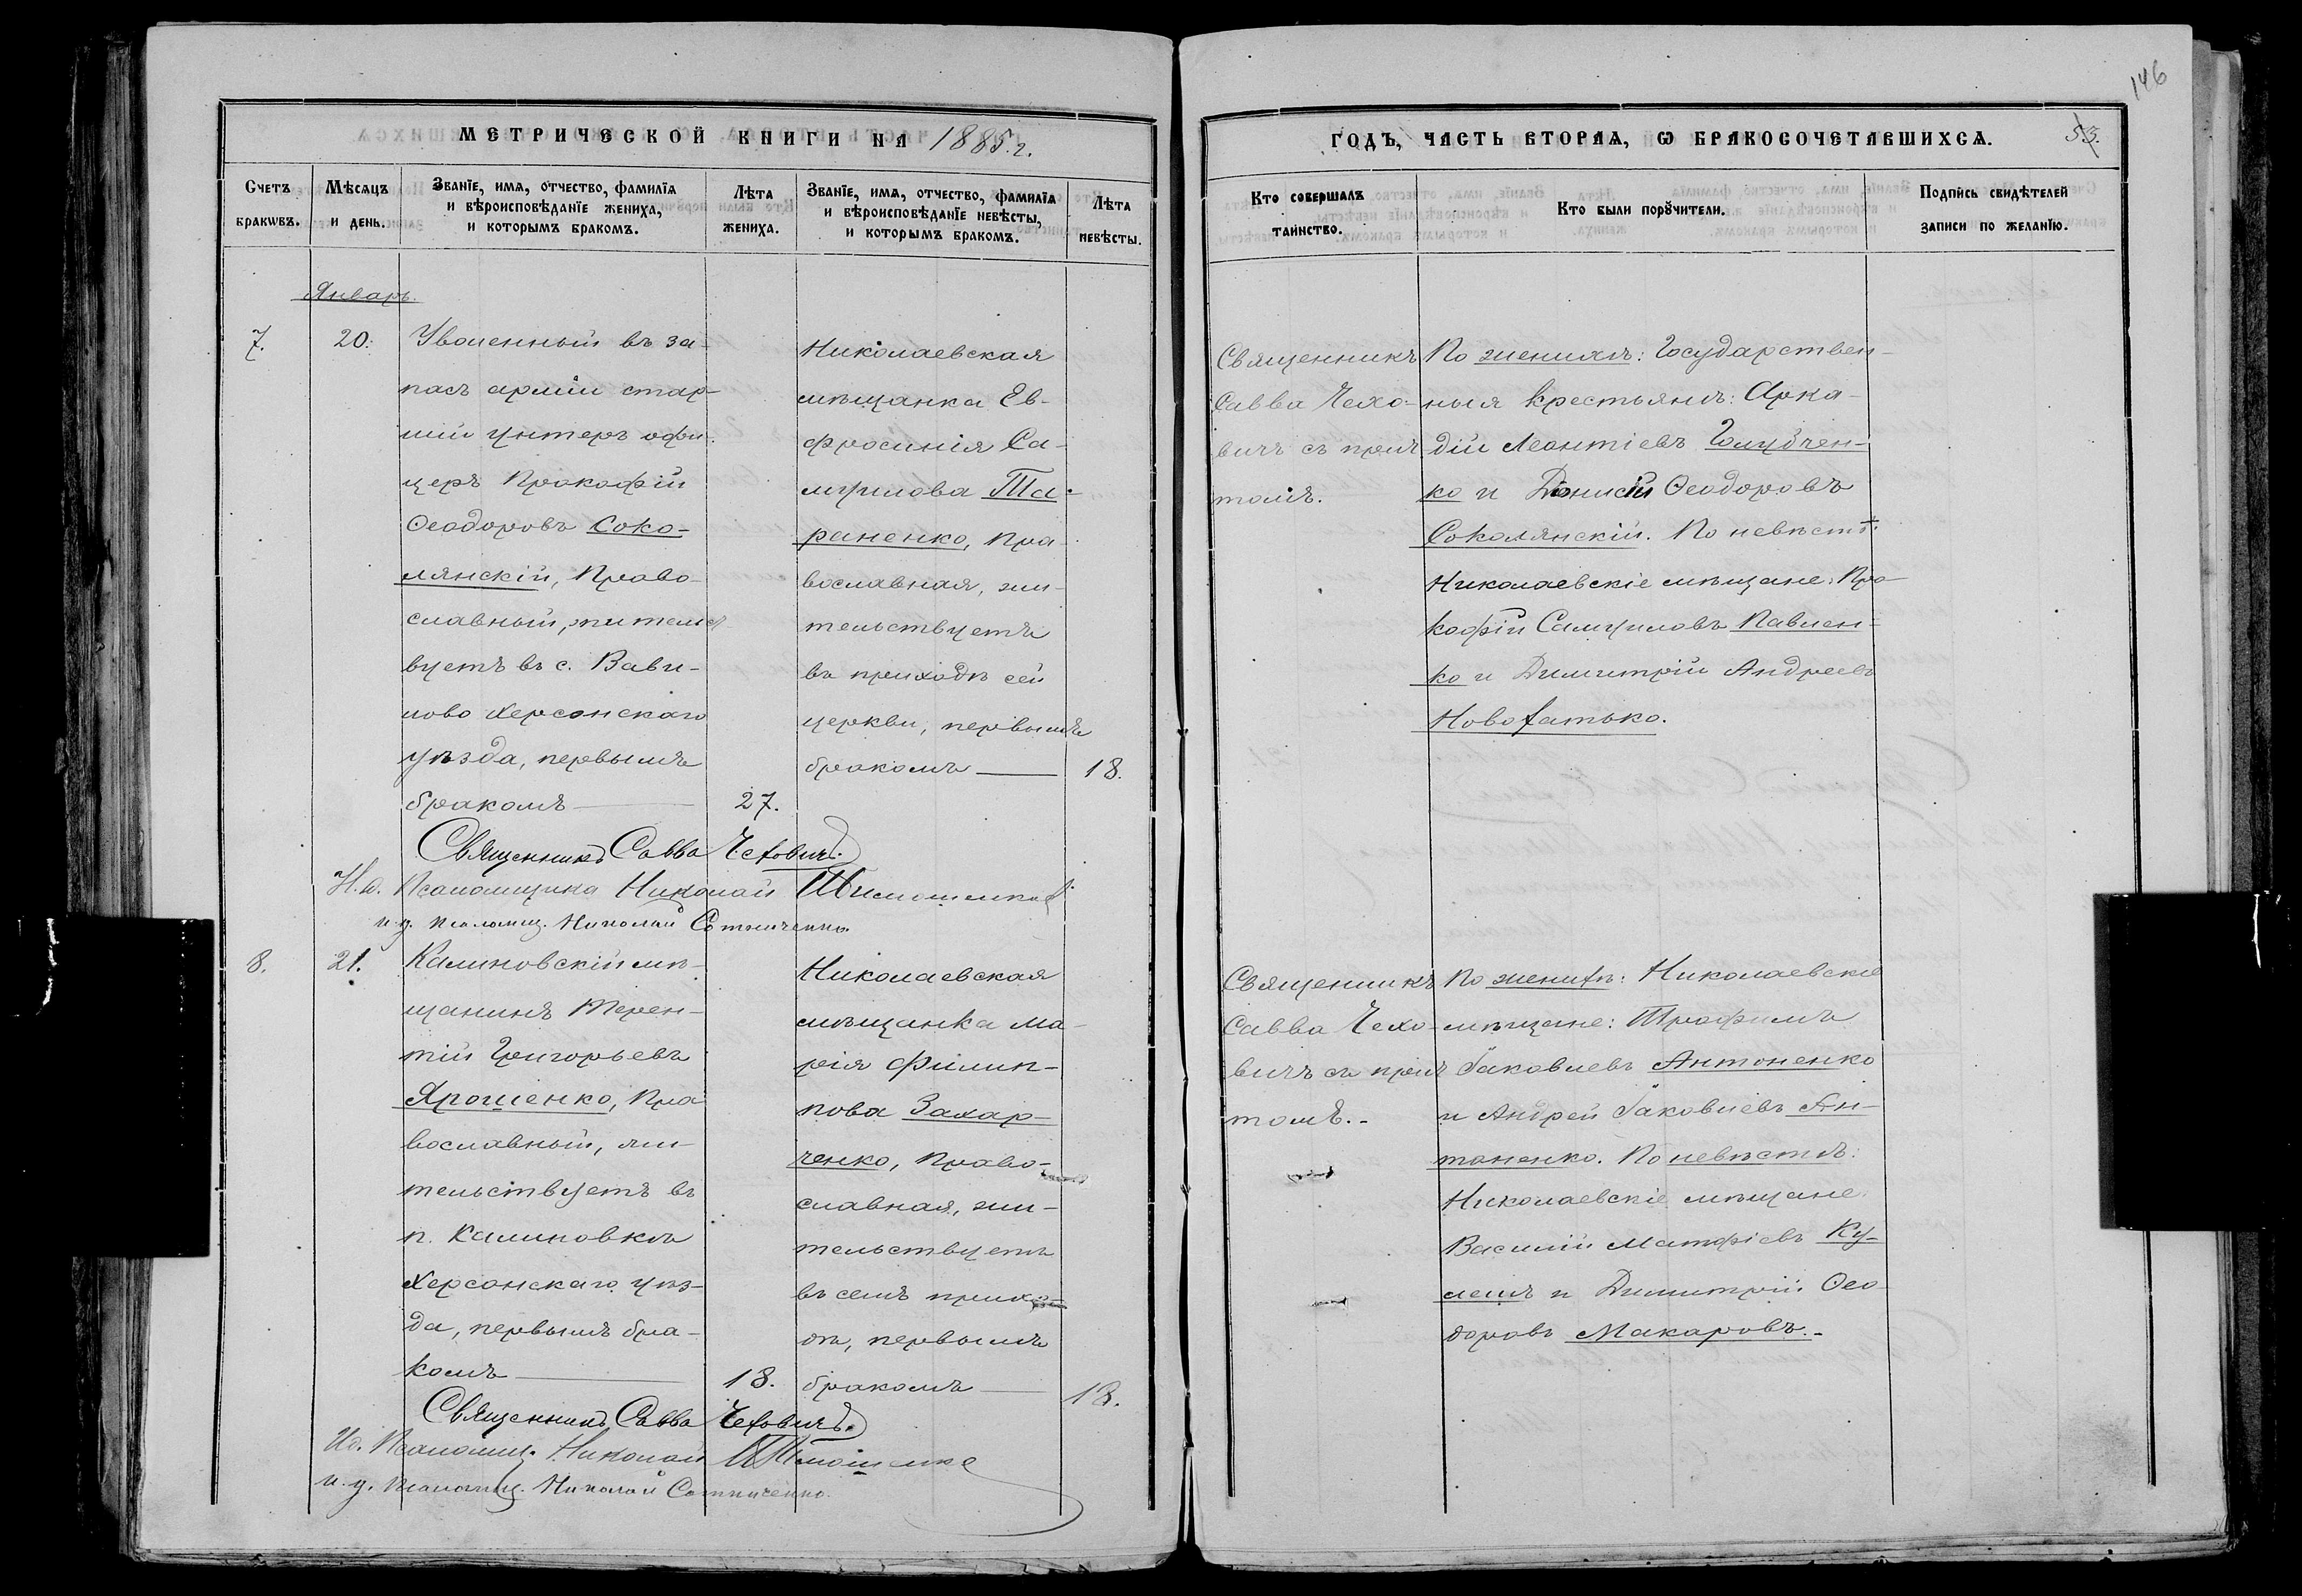 МЕТРИЧЕСКОЙ КНИГИ НА 1885 г.
Счетъ бракѡвъ.
Мѣсяцъ и день.
Званїе, имѧ, отчество, фамилїѧ
и вѣроисповѣданїе жениха,
и которымъ бракомъ.
Лѣта жениха.
Званїе, имѧ, отчество, фамилїѧ
и вѣроисповѣданїе невѣсты,
и которымъ бракомъ.
Лѣта невѣсты.
Январь.
7.
20.
Уволенный въ за-
пасъ арміи стар-
шій унтеръ офи-
церъ Прокофій
Ѳеодоровъ Соко-
лянскій, Право-
славный, жительст
вуетъ въ с. Вави-
лово Херсонскаго
уѣзда, первымъ
бракомъ
27.
Николаевская
мѣщанка Ев-
фросинія Са-
муилова Та-
раненко, Пра-
вославная, жи-
тельствуетъ
въ приходѣ сей
церкви, первымъ
бракомъ
18.
Священникъ Савва Чеховичъ.
И. д. Псаломщика Николай Тимошенко
и. д. псаломщ. Николай Сотниченко.
8.
21.
Калиновскій мѣ-
щанинъ Терен-
тій Григорьевъ
Ярошенко, Пра
вославный, жи-
тельствуетъ въ
п. Калиновкѣ
Херсонскаго уѣз-
да, первымъ бра-
комъ
18.
Николаевская
мѣщанка Ма-
рія Филип-
пова Захар-
ченко, Право-
славная, жи-
тельствуетъ
въ семъ прихо-
дѣ, первымъ
бракомъ
18.
Священникъ Савва Чеховичъ.
И.д. Псаломщ. Николай Тимошенко
и. д. псаломщ. Николай Сотниченко.
146
ГОДЪ, ЧАСТЬ ВТОРАѦ, Ѡ БРАКОСОЧЕТАВШИХСѦ.
53.
Кто совершалъ
таинство.
Кто были порꙋчители.
Подпись свидѣтелей
записи по желанїю.
Священникъ
Савва Чехо-
вичъ съ прич
томъ.
По женихѣ: Государствен-
ныя крестьянъ: Арка-
дій Леонтіевъ Голубчен-
ко и Діонисій Ѳеодоровъ
Соколянскій. По невѣстѣ:
Николаевскіе мѣщане: Про-
кофій Самуиловъ Павлен-
ко и Димитрій Андреевъ
Новохатько.
Священникъ
Савва Чехо-
вичъ съ прич
томъ.
По женихѣ: Николаевскіе
мѣщане: Трофимъ
Іаковлевъ Антоненко
и Андрей Іаковлевъ Ан-
тоненко. По невѣстѣ:
Николаевскіе мѣщане
Василій Матфіевъ Ку-
лешъ и Димитрій Ѳео-
доровъ Макаровъ.